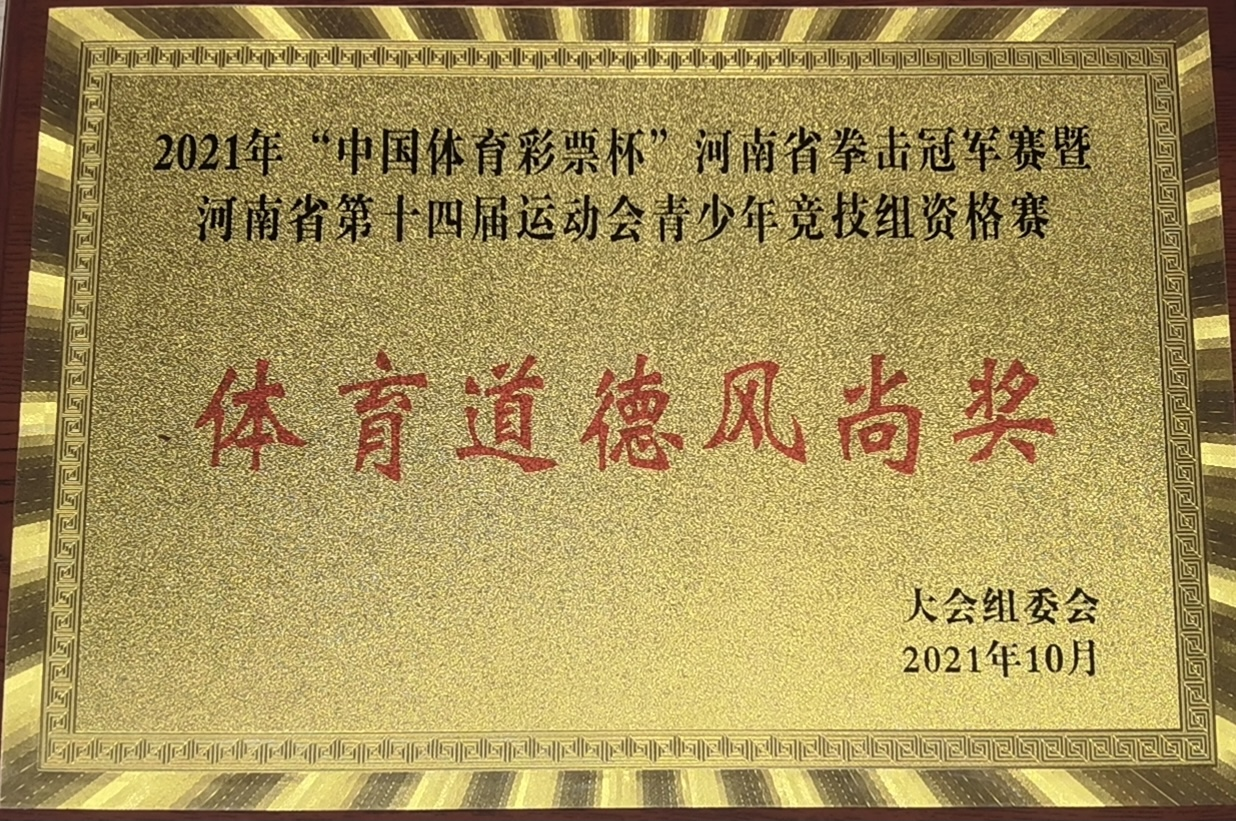 2021年“中国体育彩票杯”河南省拳击冠军赛暨
河南省第十四届运动会青少年竞技组资格赛
体育道德风尚奖
大会组委会
2021年10月